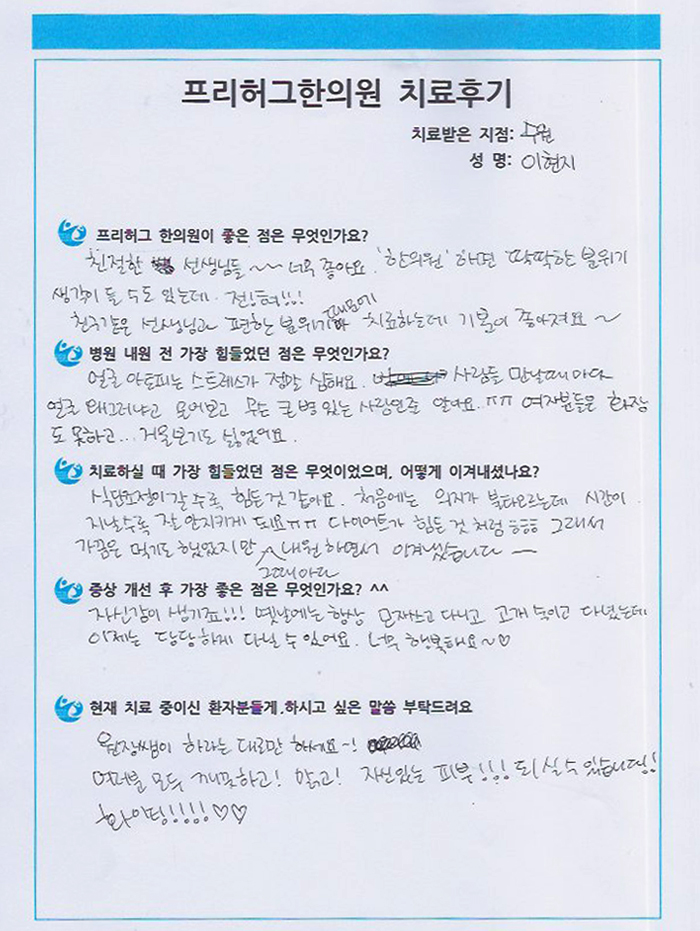 프리허그한의원 치료후기
치료받은 지점: 수원
성 명: 이현지
프리허그 한의원이 좋은 점은 무엇인가요?
친절한 선생님들 ~~ 너무 좋아요. '한의원' 하면 딱딱한 분위기
생각이 들 수도 있는데. 전혀!!!
친구같은 선생님과 편한 분위기 때문에 치료하는데 기분이 좋아져요 ~
병원 내원 전 가장 힘들었던 점은 무엇인가요?
얼굴 아토피는 스트레스가 정말 심해요. 사람들 만날때마다
얼굴 왜그러냐고 물어보고 무슨 큰병 있는 사람인줄 알아요..ㅠㅠ 여자분들은 화장
도 못하고... 거울보기도 싫었어요.
치료하실 때 가장 힘들었던 점은 무엇이었으며, 어떻게 이겨내셨나요?
식단조절이 갈수록 힘든것 같아요. 처음에는 의지가 불타오르는데 시간이
지날수록 잘 안지키게 되요ㅠㅠ 다이어트가 힘든 것 처럼 ㅎㅎㅎ 그래서
가끔은 먹기도 했었지만 그때마다 내원 하면서 이겨냈습니다 ~
증상 개선 후 가장 좋은 점은 무엇인가요? ^^
자신감이 생기죠!!! 옛날에는 항상 모자쓰고 다니고 고개 숙이고 다녔는데
이제는 당당하게 다닐 수 있어요. 너무 행복해요~♡
현재 치료 중이신 환자분들게,하시고 싶은 말씀 부탁드려요
원장쌤이 하라는 대로만 하세요~!
여러분 모두 깨끗하고! 맑고! 자신있는 피부!!! 되실수 있습니다!!
화이팅!!!!!♡♡